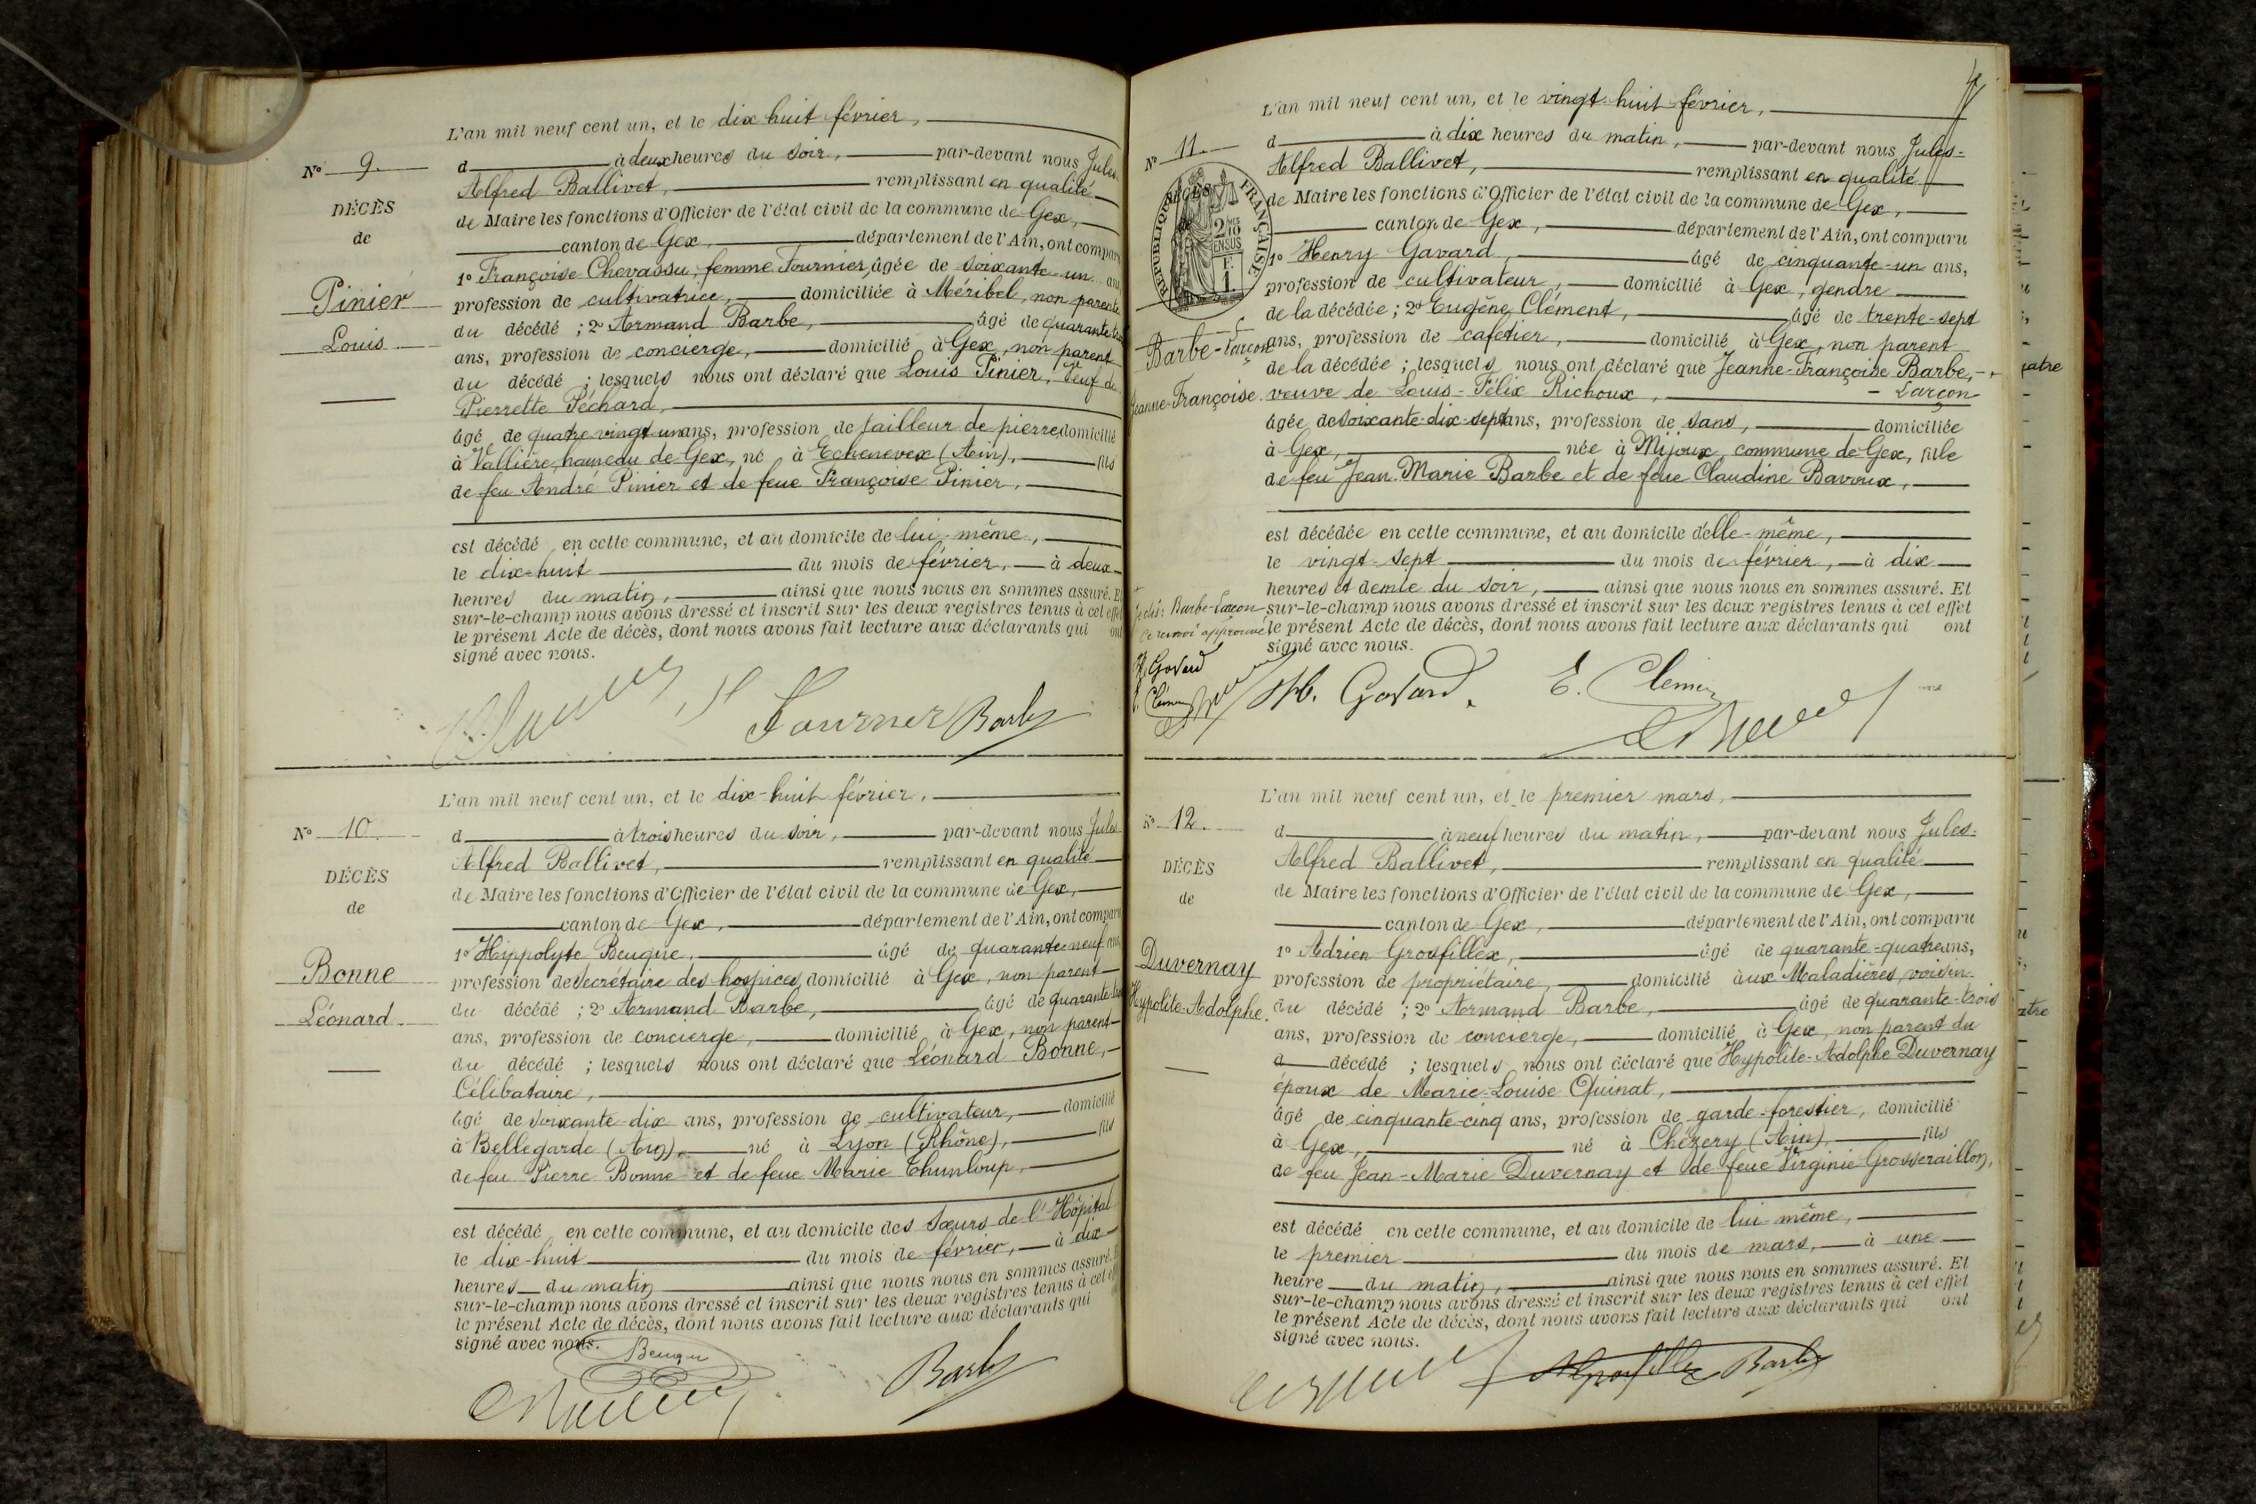 L'an mil neuf cent un, et le dix huit février,
N° 9.
d à deux heures du soir, par-devant nous Jules
Alfred Ballivet, remplissant en qualité
DÉCÈS
de Maire les fonctions d'Officier de l'état civil de la commune de Gex,
de
canton de Gex, département de l'Ain, ont comparu
1° Françoise Chevassu, femme Fournier, âgée de soixante-un ans
Pinier
profession de cultivatrice, domiciliée à Méribel, non parente
Louis
du décédé ; 2° Armand Barbe, âgé de quarante-trois
ans, profession de concierge, domicilié à Gex, non parent
du décédé ; lesquels nous ont déclaré que Louis Pinier, veuf de
Pierrette Péchard,
âgé de quatre vingt un ans, profession de tailleur de pierre, domicilié
à Vallière, hameau de Gex, né à Echenevex (Ain), fils
de feu André Pinier et de feue Françoise Pinier,
est décédé en cette commune, et au domicile de lui-même,
le dix-huit du mois de février, à deux
heures du matin, ainsi que nous nous en sommes assuré. Et
sur-le-champ nous avons dressé et inscrit sur les deux registres tenus à cet effet
le présent Acte de décès, dont nous avons fait lecture aux déclarants qui ont
signé avec nous.
Fournier Barbe
L'an mil neuf cent un, et le dix-huit février,
N° 10.
d à trois heures du soir, par-devant nous Jules
Alfred Ballivet, remplissant en qualité
DÉCÈS
de Maire les fonctions d'Officier de l'état civil de la commune de Gex,
de
canton de Gex, département de l'Ain, ont comparu
1° Hippolyte Beugne, âgé de quarante-neuf ans
Bonne
profession de Secrétaire des hospices, domicilié à Gex, non parent
Léonard
du décédé ; 2° Armand Barbe, âgé de quarante-trois
ans, profession de concierge, domicilié à Gex, non parent
du décédé ; lesquels nous ont déclaré que Léonard Bonne,
Célibataire,
âgé de soixante-dix ans, profession de cultivateur, domicilié
à Bellegarde (Ain), né à Lyon (Rhône), fils
de feu Pierre Bonne et de feue Marie Thunloup,
est décédé en cette commune, et au domicile des sœurs de l'Hôpital
le dix-huit du mois de février, à dix
heures du matin ainsi que nous nous en sommes assuré. Et
sur-le-champ nous avons dressé et inscrit sur les deux registres tenus à cet effet
le présent Acte de décès, dont nous avons fait lecture aux déclarants qui
signé avec nous.
Barbe
L'an mil neuf cent un, et le vingt-huit février,
N° 11.
d à dix heures du matin, par-devant nous Jules-
Alfred Ballivet, remplissant en qualité
DÉCÈS
RÉPUBLIQUE FRANÇAISE
de Maire les fonctions d'Officier de l'état civil de la commune de Gex,
canton de Gex, département de l'Ain, ont comparu
1° Henry Gavard, âgé de cinquante-un ans,
profession de cultivateur, domicilié à Gex, gendre
de la décédée ; 2° Eugène Clément, âgé de trente-sept
Barbe-Larçon
ans, profession de cafetier, domicilié à Gex, non parent
de la décédée ; lesquels nous ont déclaré que Jeanne-Françoise Barbe,
Jeanne-Françoise.
veuve de Louis-Félix Richoux, - Larçon
âgée de soixante-dix-sept ans, profession de sans, domiciliée
à Gex, née à Mijoux, commune de Gex, fille
de feu Jean Marie Barbe et de feue Claudine Bavoux,
est décédée en cette commune, et au domicile d'elle-même,
le vingt-sept du mois de février, à dix
heures et demie du soir, ainsi que nous nous en sommes assuré. Et
Barbe-Larçon
sur-le-champ nous avons dressé et inscrit sur les deux registres tenus à cet effet
Ce renvoi approuvé
le présent Acte de décès, dont nous avons fait lecture aux déclarants qui ont
signé avec nous.
H. Gavard
H. Gavard. E. Clément
L'an mil neuf cent un, et le premier mars,
N° 12.
d à neuf heures du matin, par-devant nous Jules-
Alfred Ballivet, remplissant en qualité
DÉCÈS
de Maire les fonctions d'Officier de l'état civil de la commune de Gex,
de
canton de Gex, département de l'Ain, ont comparu
1° Adrien Grosfillex, âgé de quarante-quatre ans,
Duvernay
profession de propriétaire, domicilié aux Maladières, voisin
Hypolite-Adolphe.
du décédé ; 2° Armand Barbe, âgé de quarante-trois
ans, profession de concierge, domicilié à Gex, non parent du
d décédé ; lesquels nous ont déclaré que Hypolite-Adolphe Duvernay
époux de Marie-Louise Quinat,
âgé de cinquante-cinq ans, profession de garde-forestier, domicilié
à Gex, né à Chézery (Ain), fils
de feu Jean-Marie Duvernay et de feue Virginie Grosseraillon,
est décédé en cette commune, et au domicile de lui même,
le premier du mois de mars, à une
heure du matin, ainsi que nous nous en sommes assuré. Et
sur-le-champ nous avons dressé et inscrit sur les deux registres tenus à cet effet
le présent Acte de décès, dont nous avons fait lecture aux déclarants qui ont
signé avec nous.
Barbe